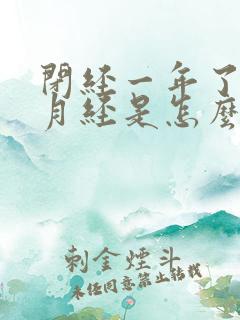 閉經一年了
月經是怎麼
刺金煙斗
未经同意禁止转载